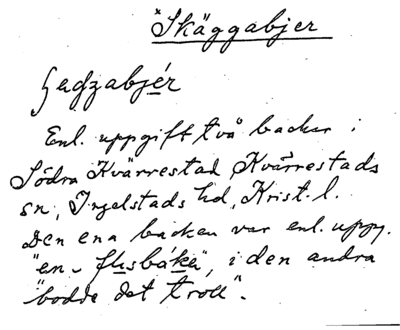 *Skäggabjer
Enl. uppgift två backar i
Södra Kvärrestad, Kvärrestads
sn, Ingelstads hd, Krist. l.
Den ena backen var enl. uppg.
"en", i den andra
"bodde det troll".